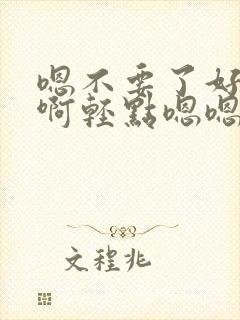 嗯不要了好
啊轻點嗯嗯
文程兆